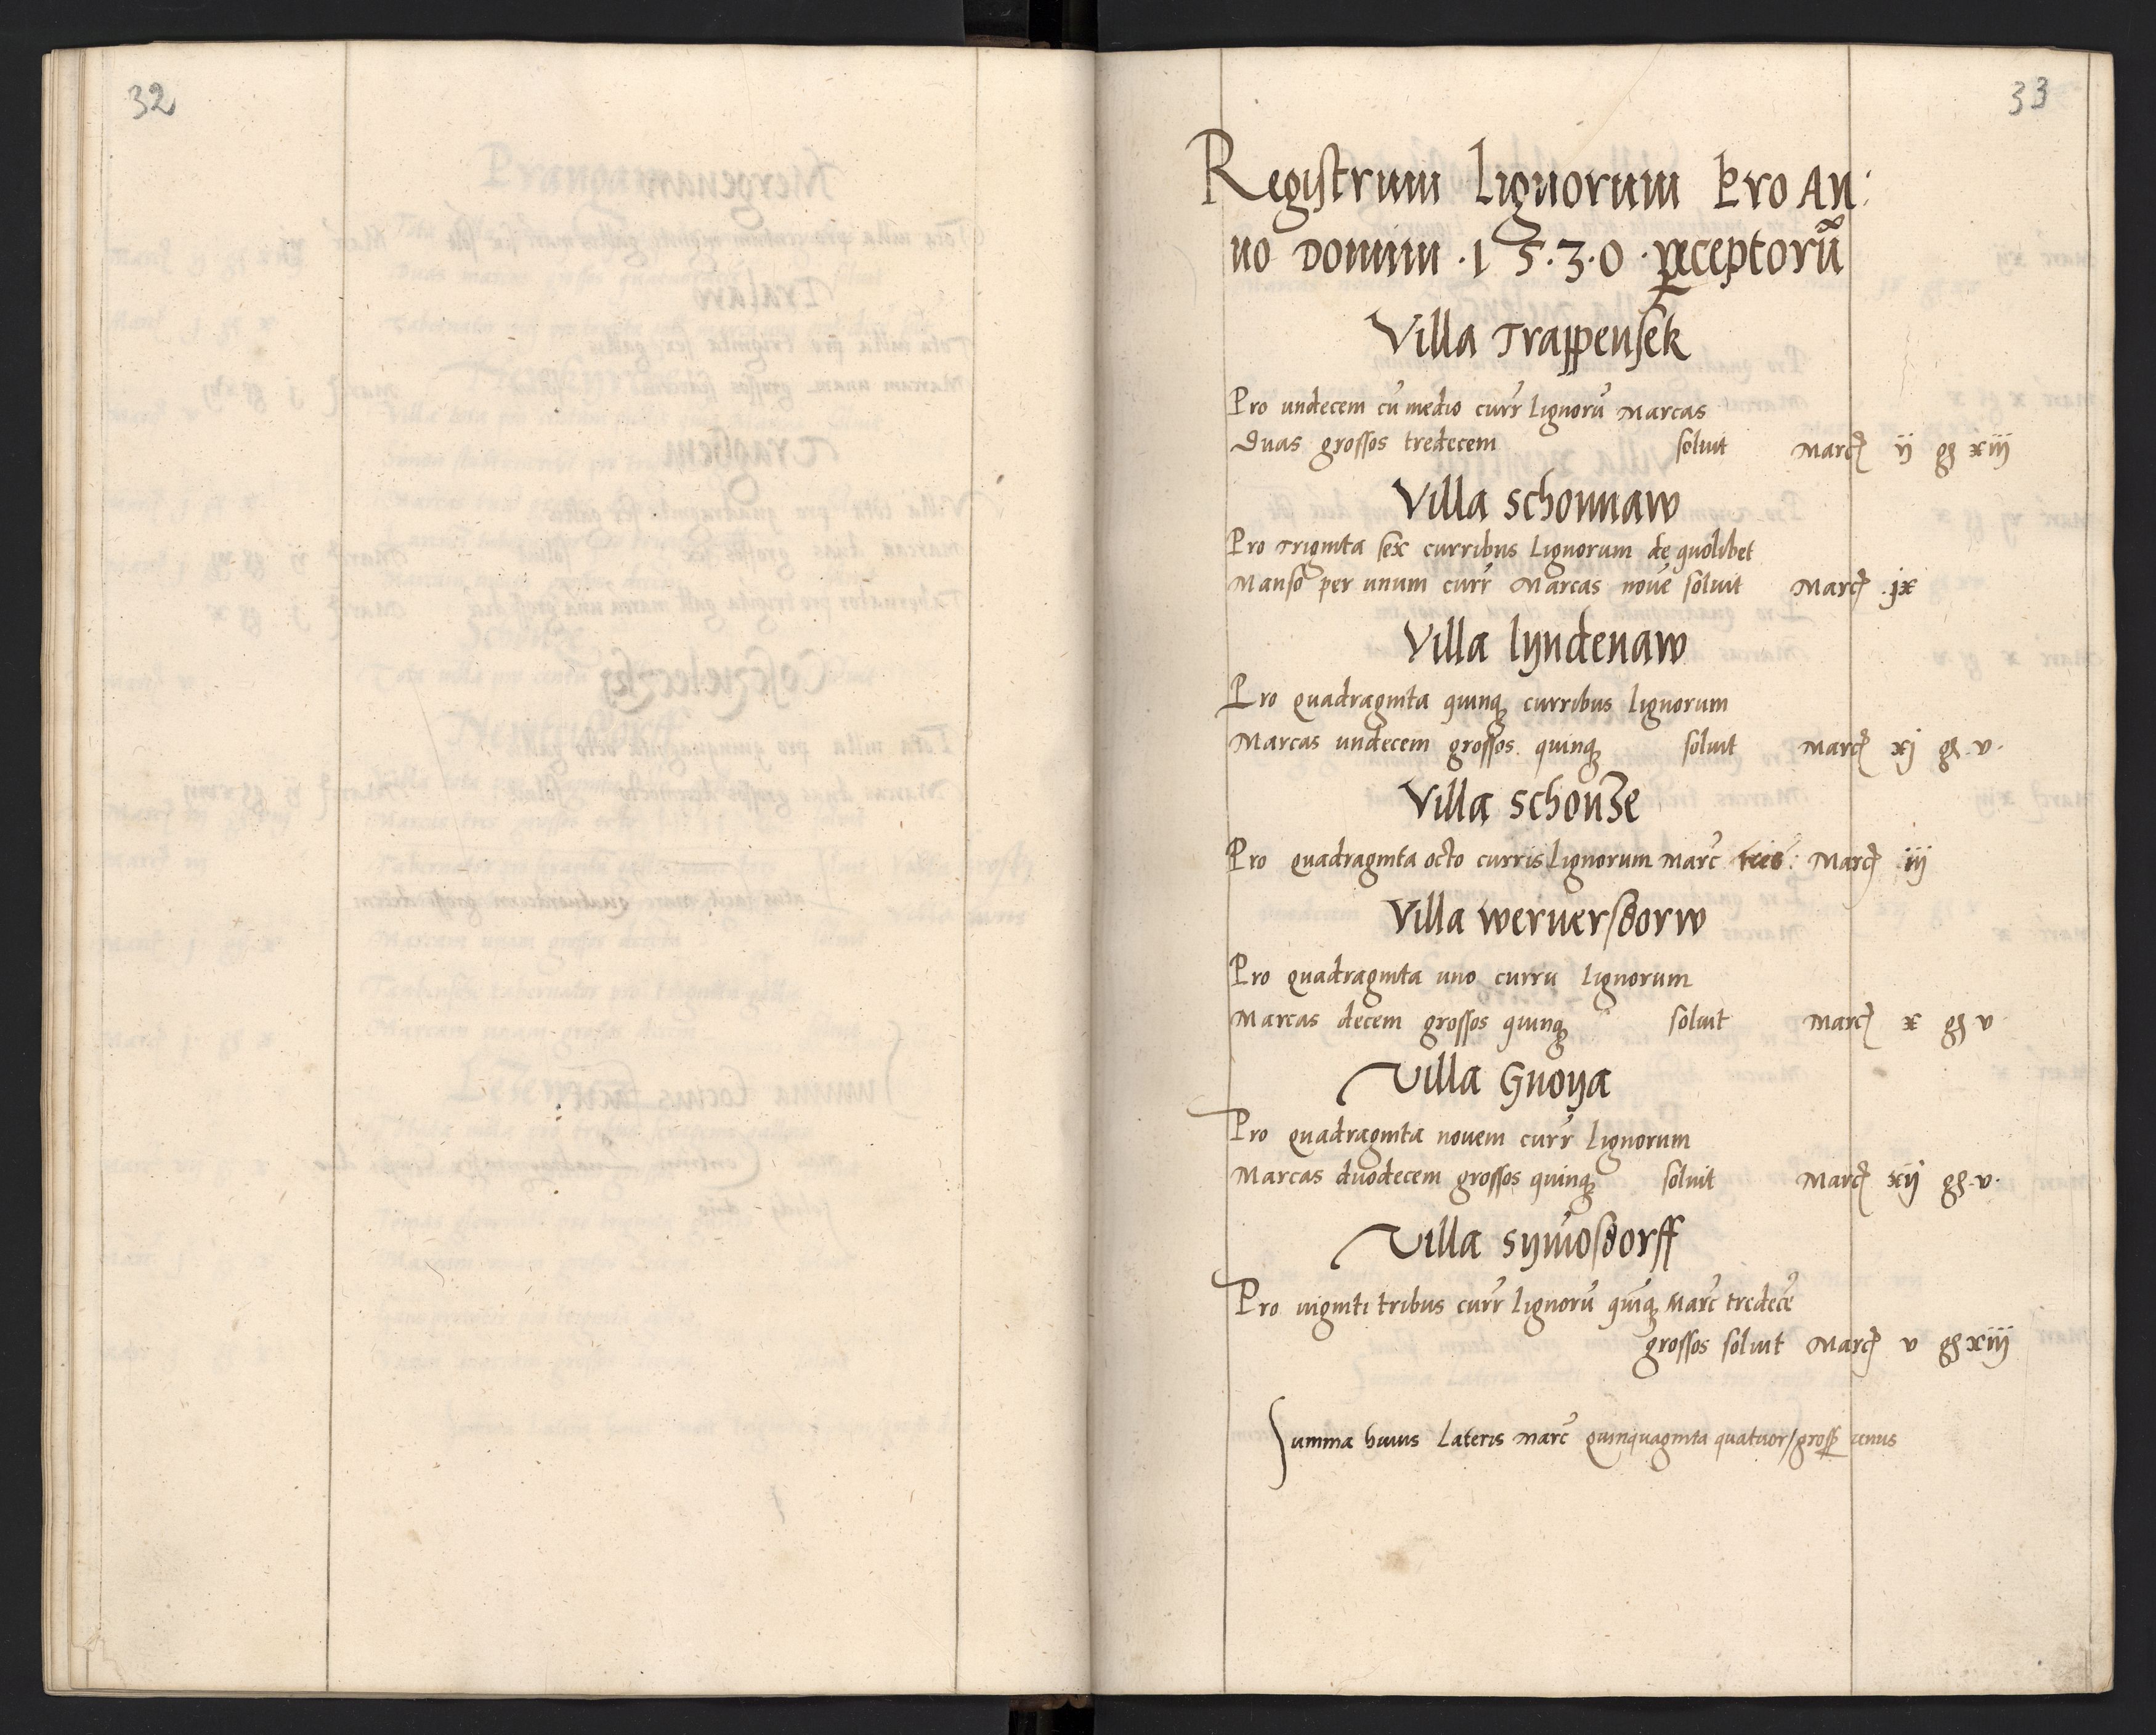 32
33
Registrum Lignorum Pro An:
no Domini .1 5.3.0. perceptorũ
Villa Trappensek
Pro undecem cũ medio curr̃ Lignorũ Marcas
Duas grossos tredecem soluit Marcꝭ ij gꝭ xiij
Villa schonnaw
Pro Triginta sex curribus Lignorum de quolibet
Manso per unum curr̃ Marcas noue soluit Marcꝭ .jx
Villa lyndenaw
Pro quadraginta quinqꝫ curribus Lignorum
Marcas undecem grossos quinqꝫ soluit Marcꝭ xj gꝭ .v.
Villa schonʒe
Pro quadraginta octo curris Lignorum Marc̃ tres: Marcꝭ iij
Villa wernersdorw
Pro quadraginta uno curru Lignorum
Marcas decem grossos quinqꝫ soluit Marcꝭ x gꝭ v
Villa Gnoya
Pro quadraginta nouem curr̃ Lignorum
Marcas duodecem grossos quinqꝫ soluit Marcꝭ xij gꝭ .v.
Villa symosdorff
Pro uiginti tribus curr̃ lignorũ quĩqꝫ Marc̃ tredecẽ
grossos soluit Marcꝭ v gꝭ xiij
Summa huius Lateris marc̃ quinquaginta quatuor/ grosꝭ unus